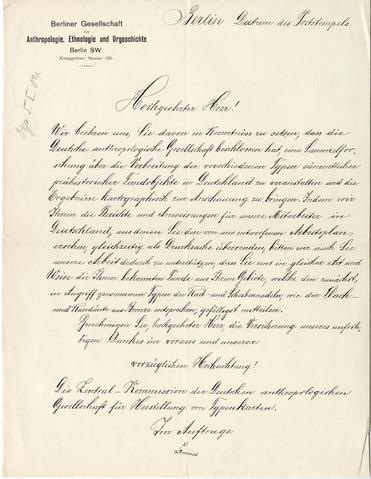 Berliner Gesellschaft
für
Anthropologie, Ethnologie und Urgeschichte
Berlin SW.
Königgrätzer Strasse 120.
Berlin Datum des Poststempels.
Hochgeehrter Herr!
Wir beehren uns, Sie davon in Kenntniss zu setzen, dass die
Deutsche anthropologische Gesellschaft beschlossen hat, eine Sammelfor-
schung über die Verbreitung der verschiedenen Typen sämmtlicher
prähistorischer Fundobjekte in Deutschland zu veranstalten und die
Ergebnisse kartographisch zur Anschauung zu bringen. Indem wir
Ihnen die Berichte und Anweisungen für unsere Mitarbeiter in
Deutschland, aus denen Sie den von uns entworfenen Arbeitsplan
ersehen, gleichzeitig als Drucksache übersenden, bitten wir auch Sie
unsere Arbeit dadurch zu unterstützen, dass Sie uns in gleicher Art und
Weise die Ihnen bekannten Funde aus Ihrem Gebiete, welche den zunächst
in Angriff genommenen Typen der Rad- und Scheibennadeln, wie der Flach-
und Randäxte aus Bronze entsprechen, gefälligst mitteilen.
Genehmigen Sie, hochgeehrter Herr, die Versicherung unseres aufrich-
tigen Dankes im voraus und unserer
vorzüglichen Hochachtung!
Die Zentral-Kommission der Deutschen anthropologischen
Gesellschaft für Herstellung von Typenkarten.
Im Auftrage
Lissauer